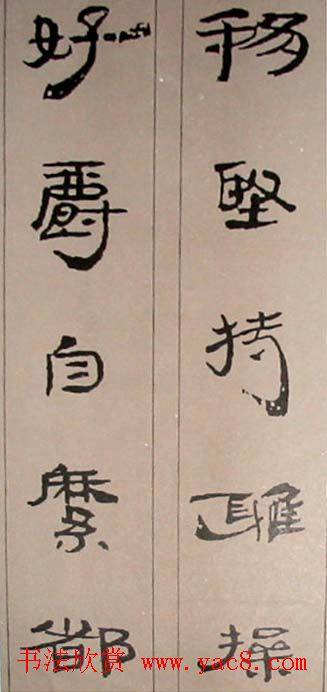 移堅持雅操
好爵自縻都
书法欣赏 www.yac8.com